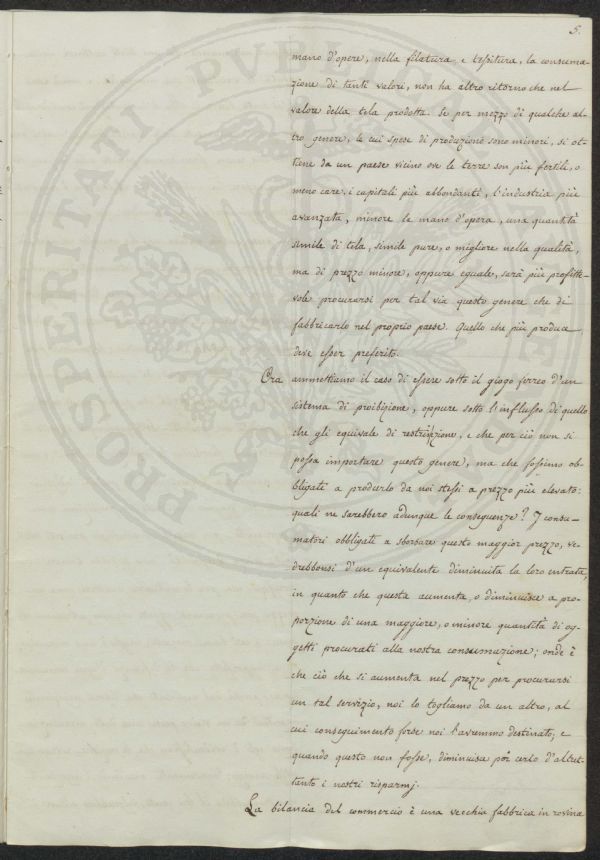 5.
mano d'opere, nella filatura, e tessitura, la consuma-
zione di tanti valori, non ha altro ritorno che nel
valore della tela prodotta. Se per mezzo di qualche al-
tro genere, le cui spese di produzione sono minori, si ot-
tiene da un paese vicino ove le terre son più fertili, o
meno care, i capitali più abbondanti, l'industria più
avanzata, minore le mano d'opera, una quantità
simile di tela, simile pure, o migliore nella qualità,
ma di prezzo minore, oppure eguale, sarà più profitte-
vole procurarsi per tal via questo genere che di
fabbricarlo nel proprio paese. Quello che più produce
deve esser preferito.
Ora ammettiamo il caso di essere sotto il giogo ferreo d'un
sistema di proibizione, oppure sotto l'influsso di quello
che gli equivale di restrizione, e che per ciò non si
possa importare questo genere, ma che fossimo ob-
bligati a produrlo da noi stessi a prezzo più elevato:
quali ne sarebbero adunque le conseguenze? I consu-
matori obbligati a sborsare questo maggior prezzo, ve-
drebbonsi d'un equivalente diminuita la loro entrata,
in quanto che questa aumenta, o diminuisce a pro-
porzione di una maggiore, o minore quantità di og-
getti procurati alla nostra consumazione; onde è
che ciò che si aumenta nel prezzo per procurarsi
un tal servizio, noi lo togliamo da un altro, al
cui conseguimento forse noi l'avremmo destinato, e
quando questo non fosse, diminuisce per certo d'altret-
tanto i nostri risparmj.
La bilancia del commercio è una vecchia fabbrica in rovina
PROSPERITATI PUBLICAE